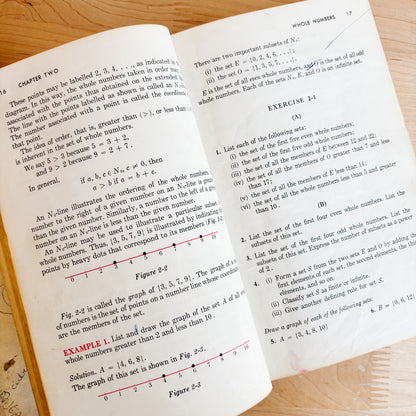 16 CHAPTER TWO
These points may be labelled 2, 3, 4, . . ., as indicated in
diagram. In this way, the whole numbers taken in order
associated with the points thus obtained on the extended
The line with the points labelled as shown is called an
The number associated with a point is called the coordinate
that point.
The idea of order, that is, greater than (>), or less than
is inherent in the set of whole numbers.
We say 5 > 3 because 5 = 3 + 2.
and 9 > 2 because 9 = 2 + 7.
In general, if a, b, c ∈ No, c ≠ 0, then
a > b if a = b + c.
An No-line illustrates the ordering of the whole numbers.
number to the right of a given number on an No-line is greater
than the given number. Similarly, a number to the left of a given
number on an No-line is less than the given number.
An No-line may be used to illustrate a particular subset of
whole numbers. Thus, {3, 5, 7, 9} is illustrated by indicating
points by heavy dots that correspond to its members (Fig.
0 1 2 3 4 5 6 7 8 9 10
Figure 2-2
Fig. 2-2 is called the graph of {3, 5, 7, 9}. The graph of a set
of numbers is the set of points on a number line whose coordinates
are the members of the set.
EXAMPLE 1. List and draw the graph of the set A of all even
whole numbers greater than 2 and less than 10.
Solution. A = {4, 6, 8}.
The graph of this set is shown in Fig. 2-3.
0 1 2 3 4 5 6 7 8 9 10
Figure 2-3
WHOLE NUMBERS 17
There are two important subsets of No:
(i) the set E = {0, 2, 4, 6, . . .};
(ii) the set O = {1, 3, 5, 7, . . .}.
E is the set of all even whole numbers, and O is the set of all odd
whole numbers. Each of the sets No, E, and O is an infinite set.
EXERCISE 2-1
(A)
1. List each of the following sets:
(i) the set of the first five even whole numbers;
(ii) the set of the first five odd whole numbers;
(iii) the set of all the members of E between 12 and 22;
(iv) the set of all the members of O greater than 7 and less
than 17;
(v) the set of all the members of E less than 14;
(vi) the set of all the whole numbers less than 5 and greater
than 10.
(B)
2. List the set of the first four even whole numbers. List the
subsets of this set.
3. List the set of the first four odd whole numbers. List the
subsets of this set. Express the number of subsets as a power
of 2.
4. (i) Form a set S from the two sets E and O by adding the
first elements of each set, the second elements, the third
elements, and so on.
(ii) Classify set S as finite or infinite.
(iii) Give another defining rule for set S.
Draw a graph of each of the following sets:
5. A = {3, 4, 8, 10} 6. B = {0, 6,